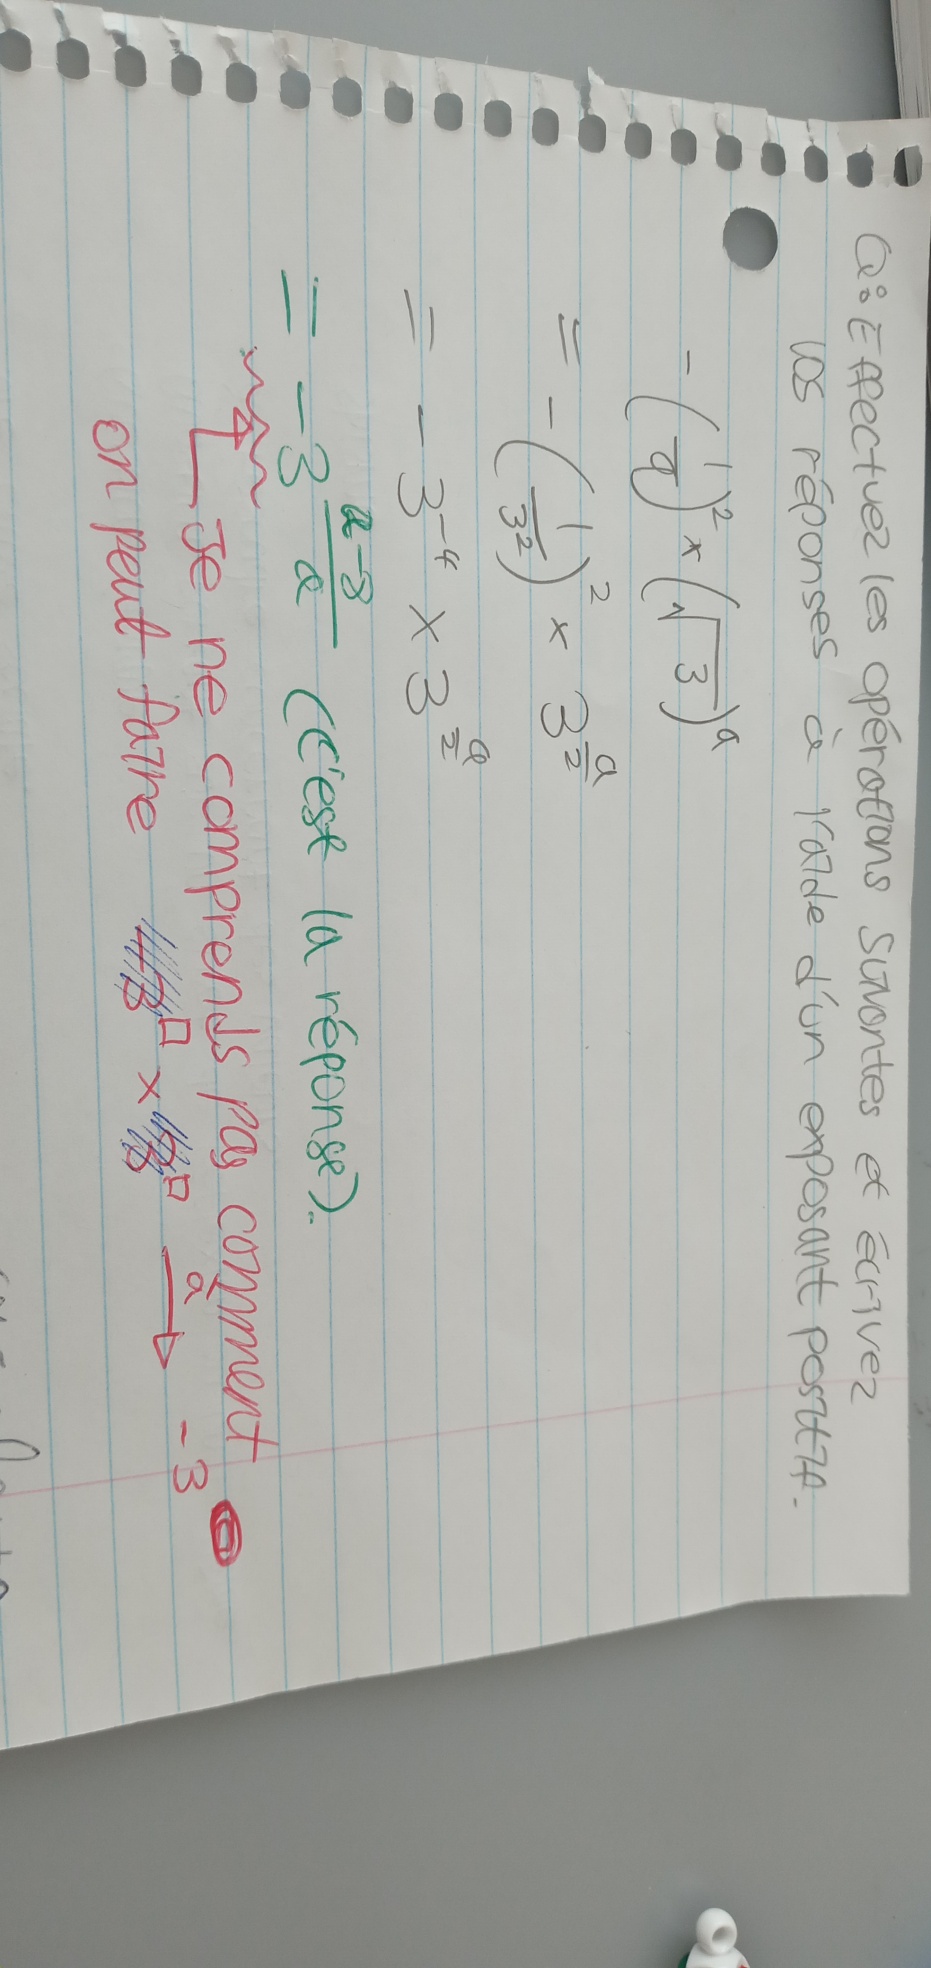 Q: Effectuez les opérations suivantes et écrivez
vos réponses à l'aide d'un exposant positif.
-(1/9)² × (√3)ᵃ
= -(1/3²)² × 3^(a/2)
= -3⁻⁴ × 3^(a/2)
= -3^((a-8)/2) (C'est la réponse).
Je ne comprends pas comment
on peut faire □ × □ à → -3□